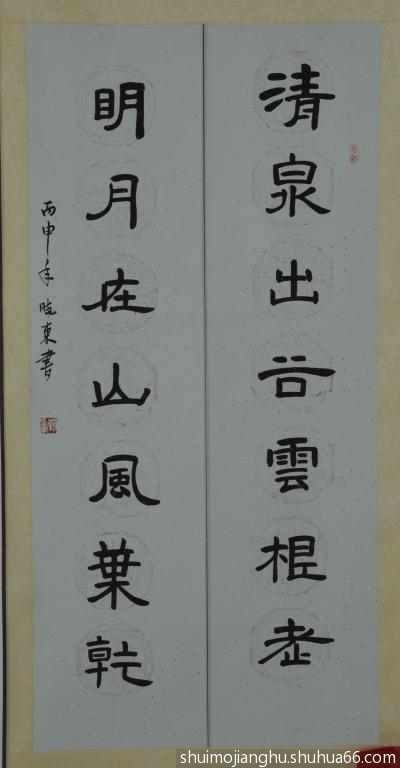 清泉出谷雲根老
明月在山風葉乾
丙申年曉東書
shuimojianghu.shuhua66.com